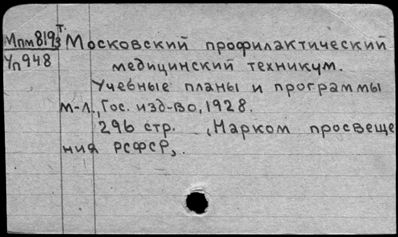 Мпм819з т. Московский профилактический
Уп948 медицинский техникум.
Учебные планы и программы
М-Л., Гос. изд-во, 1928.
296 стр. , Нарком просвеще
ния РСФСР,.